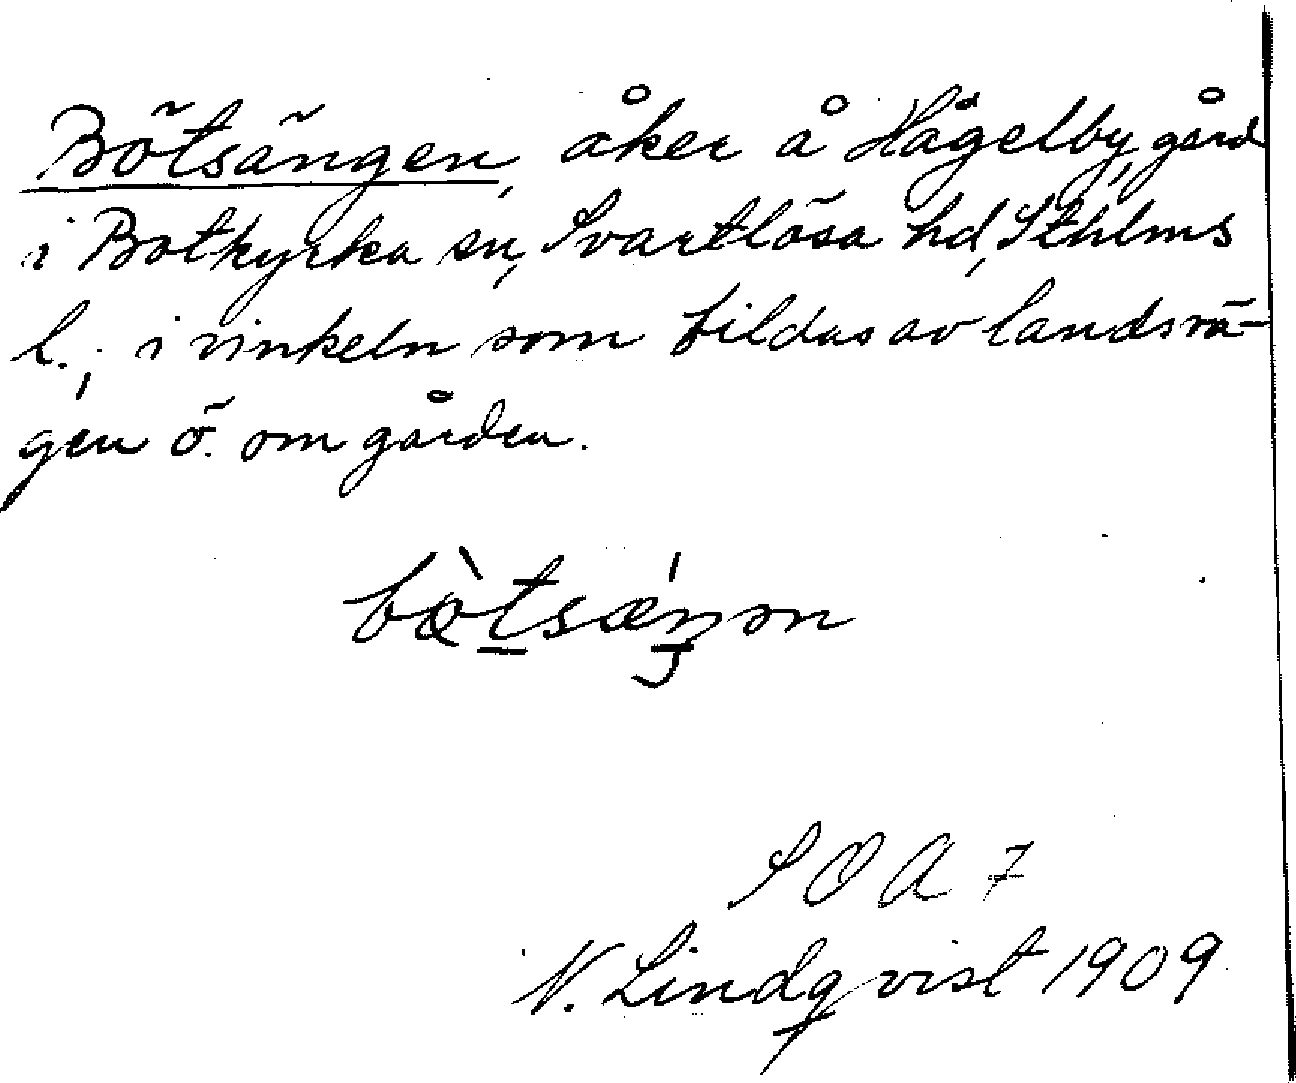 Bötsängen, åker å Hågelby, gård
i Botkyrka sn, Svartlösa hd, Sthlms
l.; i vinkeln som bildas av landsvä-
gen ö. om gården.
bø̀tsǽŋən
SOA 7
N. Lindqvist 1909